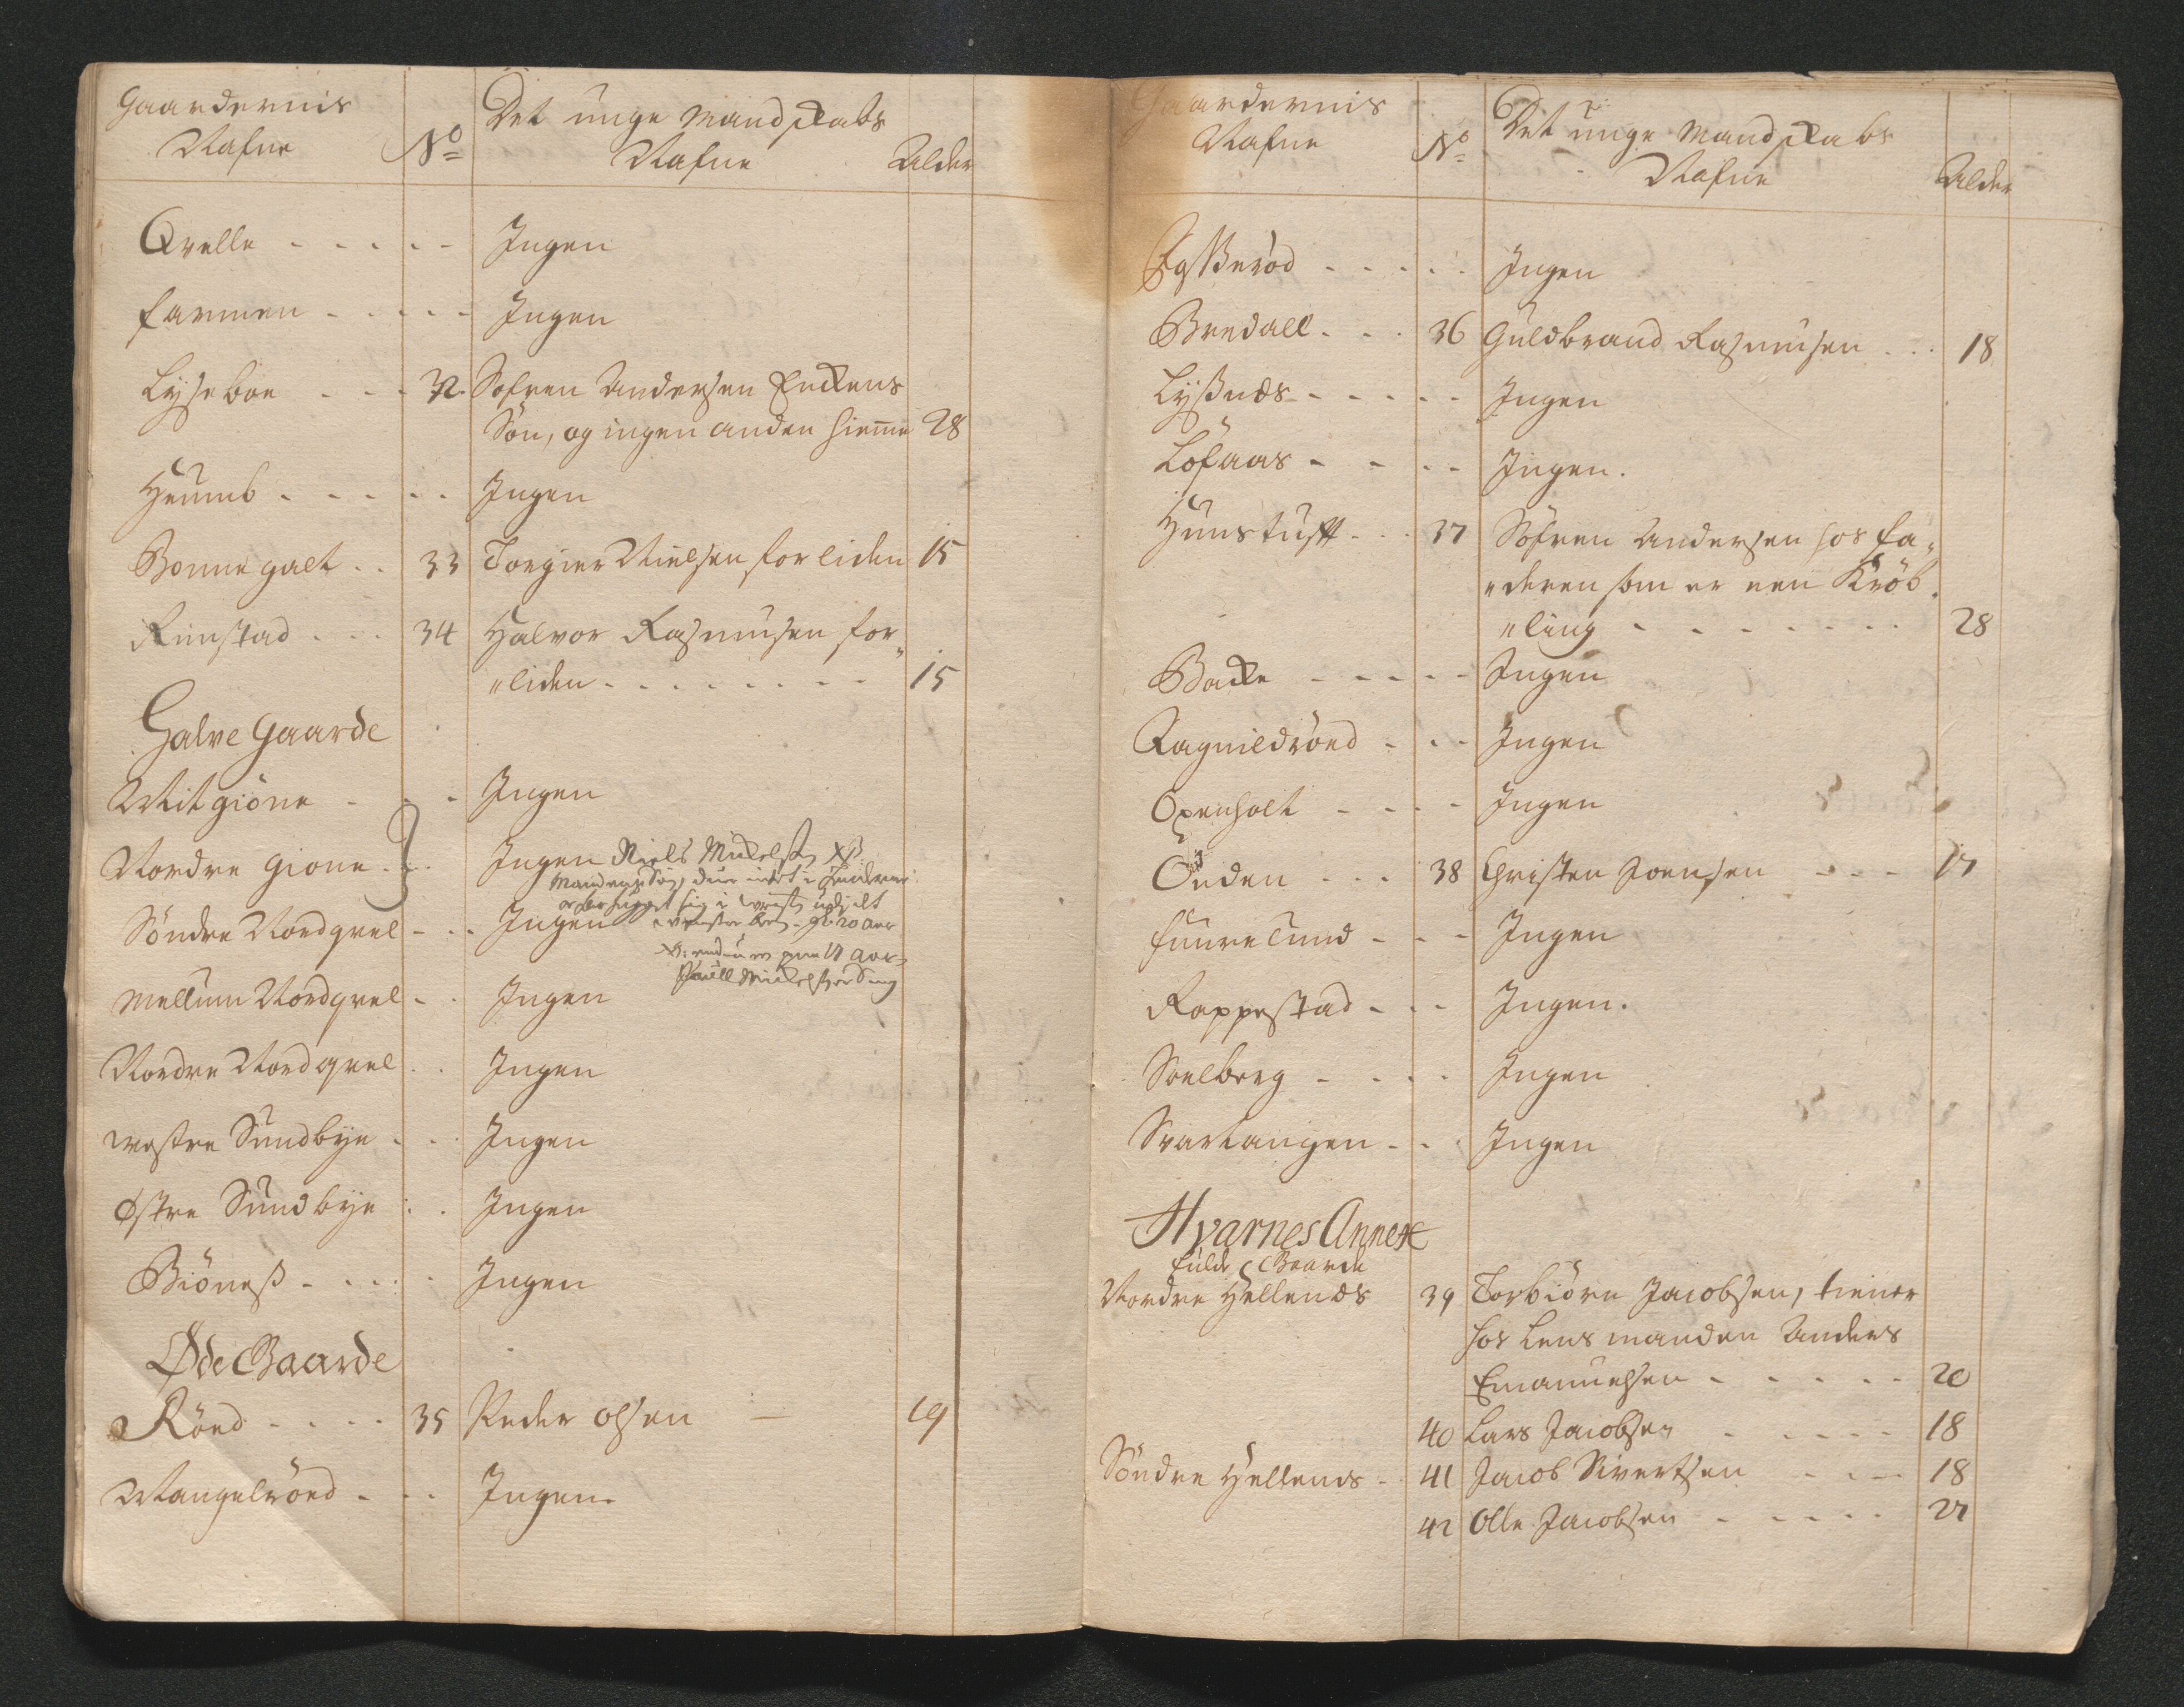 Gaardernis
Nafne
No
Det unge Mandskabs
Nafne
Alder
Qvelle - - - - - Ingen
Farmen - - - - - Ingen
Lyseboe - - - 32. Sofren Andersen Enckens
Søn, og ingen anden hieme 28
Heumb - - - - - Ingen
Bonnegalt . . 33 Torgier Nielsen for liden 15
Rimstad . . . 34 Halvor Rasmusen for„
„liden - - - - - - - - 15
Halve Gaarde
Mitgióne - - - Ingen
Nordre Gione . . Ingen Niels Mickels
Søndre Nordqvel - - - Ingen
20 aar
17 aar
Mellum Nordqvel - . Ingen
Nordre Nordqvel . . Ingen
westre Sundbye - . . Ingen
Østre Sundbye : . Ingen
Biöneß - - - . . Ingen
Øde Gaarde
Röed - - - - 35 Peder Olsen — 19
Mangelröed - - - Ingen.
Gaardernis
Nafne
No
Det unge Mandskabs
Nafne
Alder
Ingen
Bredall - . . 36 Guldbrand Rasmusen . . . 18
Lyßnæs - - - - - Ingen
Lofaas - - - - Ingen.
Hunstuft - . . 37 Söfren Andersen hos fa„
„deren som er een Kröb„
„ling - - - - - - - 28
Backe - - - - - Ingen
Ragnildröed - . - Ingen
Openholt - - - - Ingen
Önden . . . 38 Christen Joensen - - - 17
Fuurelund - - - Ingen
Rappestad - - - Ingen.
Soelberg - - - - Ingen
Svartangen - - . Ingen
Hvarnes Annex
Fulde Gaarde
Nordre Hellenæs 39 Torbiörn Jacobsen, tiener
hos Lensmanden Anders
Emanuelsen - - - - - 20
40 Lars Jacobsen - - - - - 18
Söndre Hellenæs - 41 Jacob Sivertsen - . - 18
42 Olle Jacobsen - - - - - 27